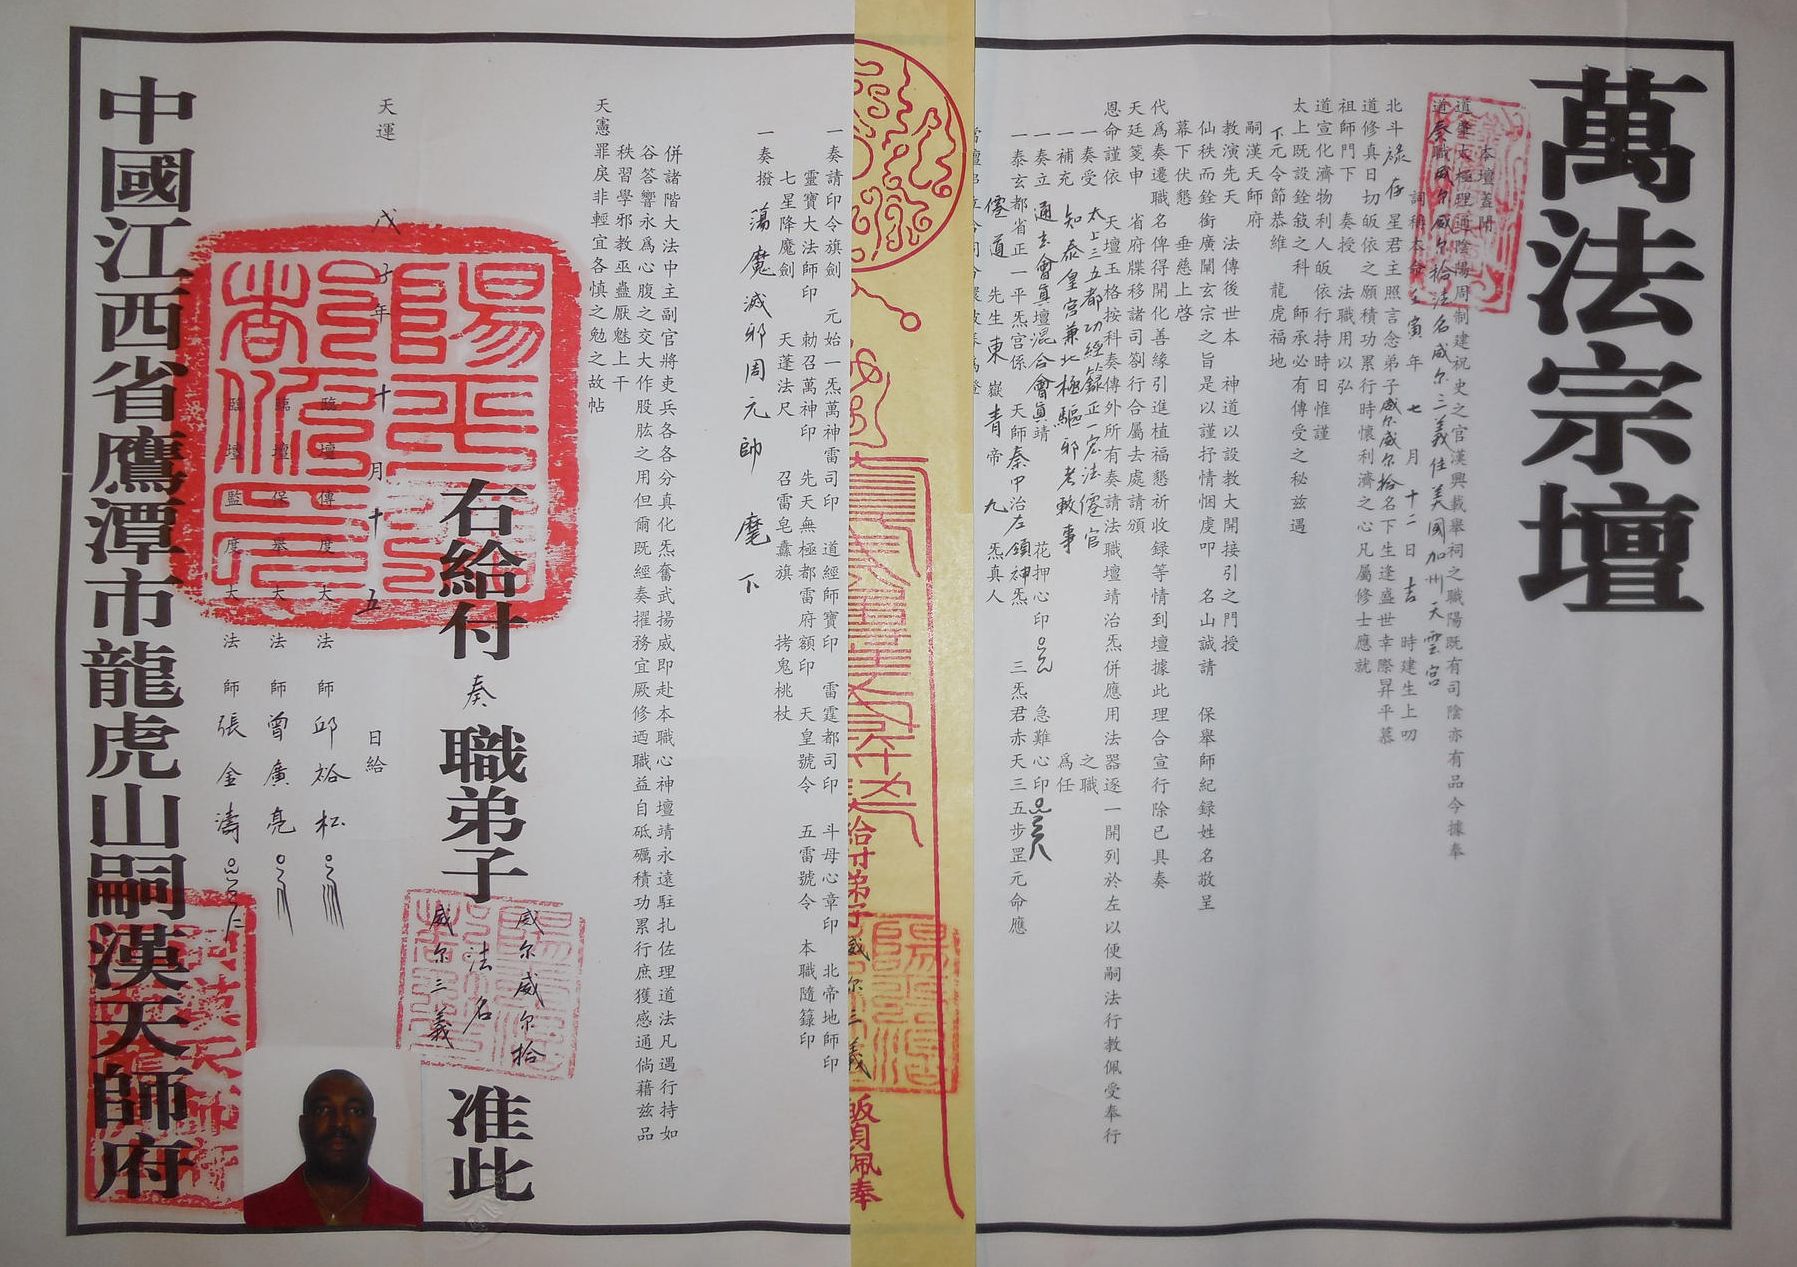 萬法宗壇
本壇蓋聞
道肇太極理通陰陽周制建祝史之官漢興載舉祠之職陽既有司陰亦有品今據奉
道奏職威尔威尔拾法名威尔三義住美國加州天雲宮
詞稱本命壬寅年七月十二日吉時建生上叨
北斗祿存星君主照言念弟子威尔威尔拾名下生逢盛世幸際昇平慕
道修真日切皈依之願積功累行時懷利濟之心凡屬修士應就
祖師門下奏授法職用以弘
道宣化濟物利人皈依行持時日惟謹
太上既設銓敍之科師承必有傳受之秘茲遇
下元令節恭維龍虎福地
嗣漢天師府
教演先天法傳後世本神道以設教大開接引之門授
仙秩而銓衡廣闡玄宗之旨是以謹抒情悃虔叩名山誠請保舉師紀録姓名敬呈
幕下伏懇垂慈上啓
代為奏遷職名俾得開化善緣引進植福懇祈收録等情到壇據此理合宣行除已具奏
天廷箋申省府牒移諸司劄行合屬去處請頒
恩命謹依天壇玉格按科奏傳外所有奏請法職壇靖治炁併應用法器逐一開列於左以便嗣法行教佩受奉行
一奏受太上三五都功經籙正一宏法僊官之職
一補充知泰皇宮兼北極驅邪考敕事為任
一奏立通玄會真壇混合會真靖花押心印急難心印
一泰玄都省正一平炁宮係天師秦中治左領神炁三炁君赤天三五步罡元命應
僊道先生東嶽青帝九炁真人
給付弟子威尔三義
佩奉
一奏請印令旗劍元始一炁萬神雷司印道經師寶印雷霆都司印斗母心章印北帝地師印
靈寶大法師印勅召萬神印先天無極都雷府額印天皇號令五雷號令本職隨籙印
七星降魔劍天蓬法尺召雷皂纛旗拷鬼桃杖
一奏撥蕩魔滅邪周元帥麾下
併諸階大法中主副官將吏兵各各分真化炁奮武揚威即赴本職心神壇靖永遠駐扎佐理道法凡遇行持如
谷答響永為心腹之交大作股肱之用但爾既經奏擢務宜厥修迺職益自砥礪積功累行庶獲感通倘藉茲品
秩習學邪教巫蠱厭魅上干
天憲罪戾非輕宜各慎之勉之故帖
右給付奏職弟子威尔威尔拾法名威尔三義准此
天運戊子年十月十五日給
臨壇傳度大法師邱裕松
臨壇保舉大法師曾廣亮
臨壇監度大法師張金濤
中國江西省鷹潭市龍虎山嗣漢天師府